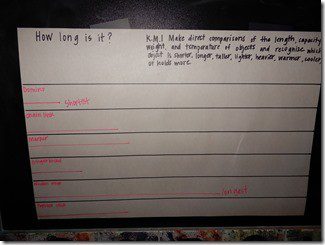 How long is it?
K.M.1 Make direct comparisons of the length, capacity,
weight, and temperature of objects and recognize which
object is shorter, longer, taller, lighter, heavier, warmer, cooler,
or holds more.
Domino
shortest
chain link
marker
longest